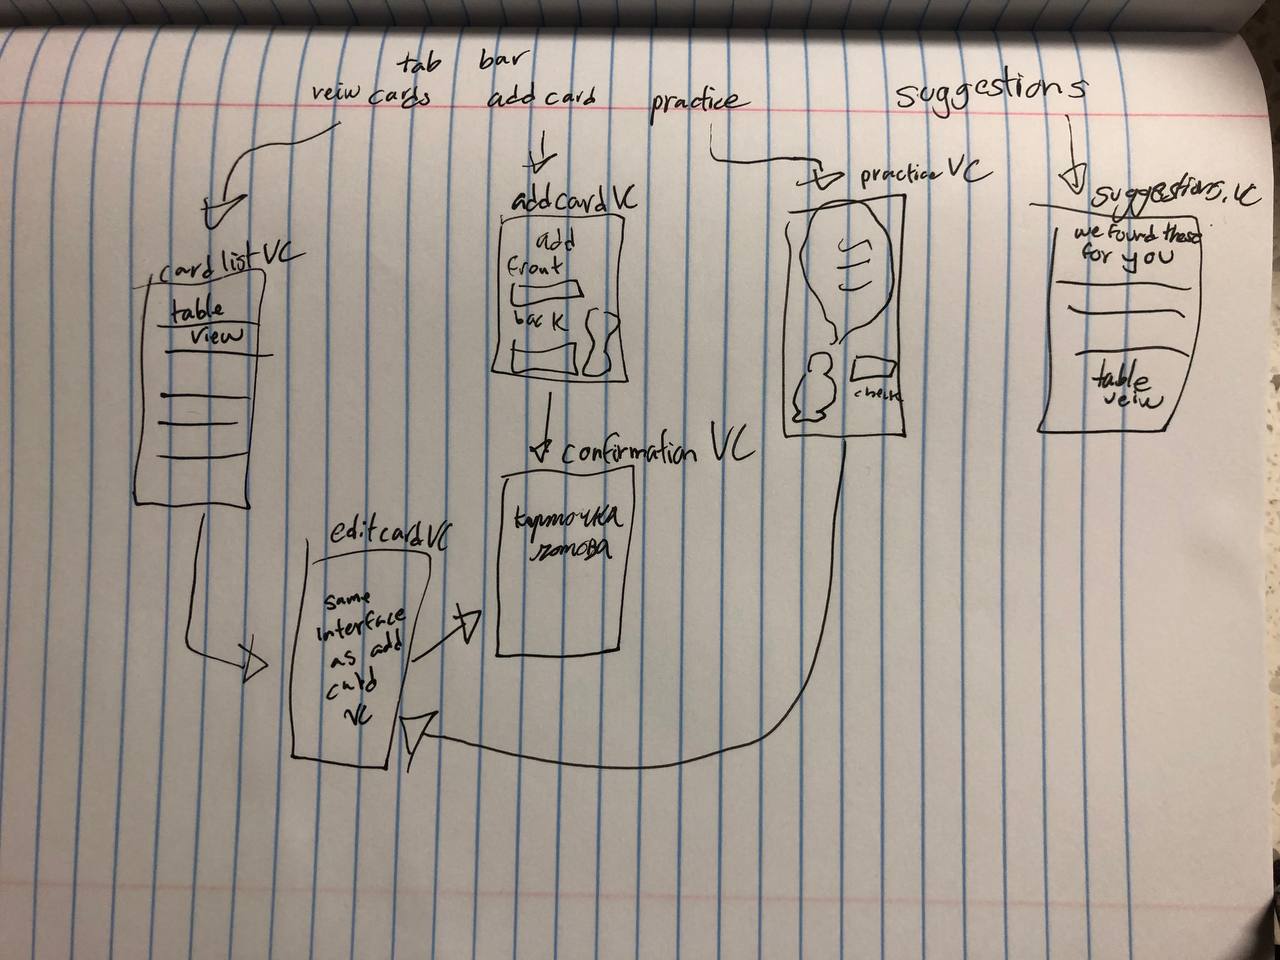 tab bar
veiw cards
add card
practice
suggestions
card list VC
table
view
add card VC
add
front
back
practice VC
check
suggestions VC
we found these
for you
table
veiw
confirmation VC
карточка
готова
edit card VC
same
interface
as add
card
VC